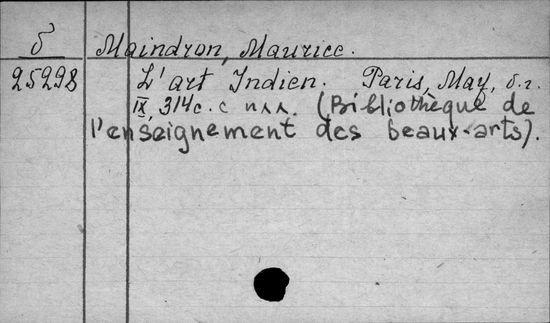 б
Maindron, Maurice.
25298
L'art Indien. Paris, May, б.г.
IX, 314 с. с илл. (Bibliothèque de
l'enseignement des beaux-arts).